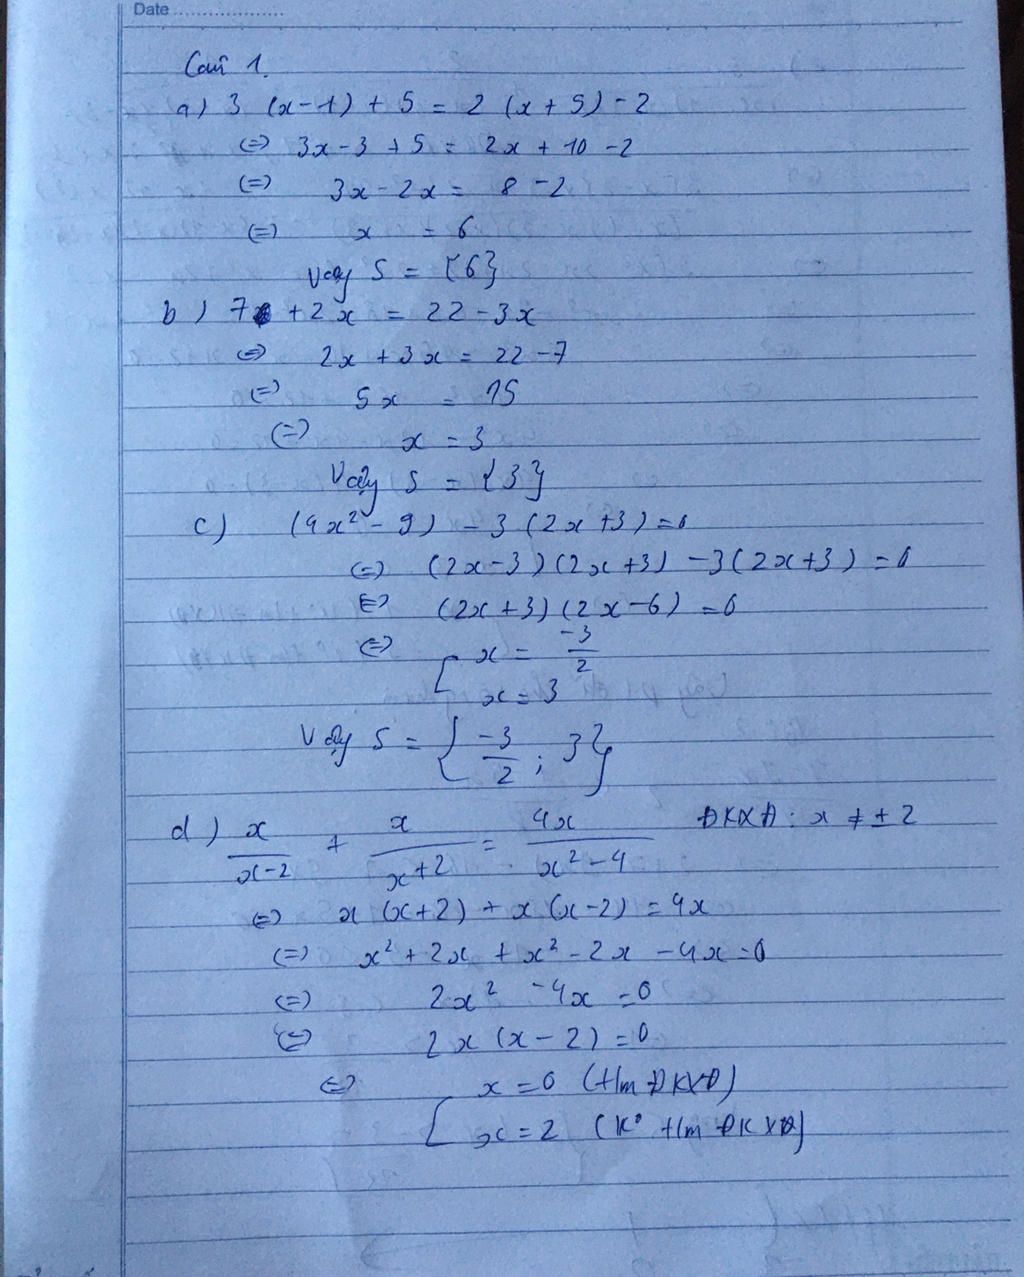 Date
Câu 1.
a) 3 (x-1) + 5 = 2 (x + 5) - 2
(=) 3x - 3 + 5 = 2x + 10 - 2
(=) 3x - 2x = 8 - 2
(=) x = 6
Vậy S = {6}
b) 7 + 2x = 22 - 3x
(=) 2x + 3x = 22 - 7
(=) 5x = 15
(=) x = 3
Vậy S = {3}
c) (4x² - 9) - 3 (2x + 3) = 0
(=) (2x - 3) (2x + 3) - 3(2x + 3) = 0
(=) (2x + 3) (2x - 6) = 0
(=) [ x = -3/2
x = 3
Vậy S = { -3/2 ; 3}
d) x/(x-2) + x/(x+2) = 4x/(x²-4) ĐKXĐ : x ≠ ± 2
(=) x (x+2) + x (x-2) = 4x
(=) x² + 2x + x² - 2x - 4x = 0
(=) 2x² - 4x = 0
(=) 2x (x - 2) = 0
(=) [ x = 0 (t/m ĐKXĐ)
x = 2 (K° t/m ĐKXĐ)